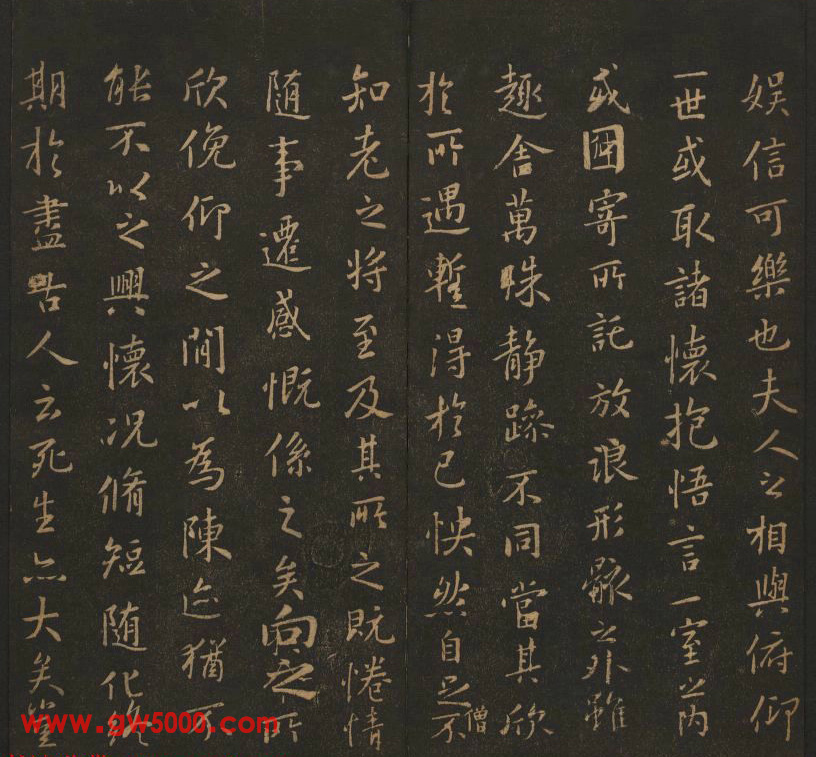 娛信可樂也夫人之相與俯仰
一世或取諸懷抱悟言一室之內
或因寄所託放浪形骸之外雖
趣舍萬殊靜躁不同當其欣
於所遇暫得於己怏然自足不
僧
知老之將至及其所之既惓情
隨事遷感慨係之矣向之所
欣俛仰之閒以為陳迹猶不
能不以之興懷況脩短隨化終
期於盡古人云死生亦大矣豈
www.gw5000.com